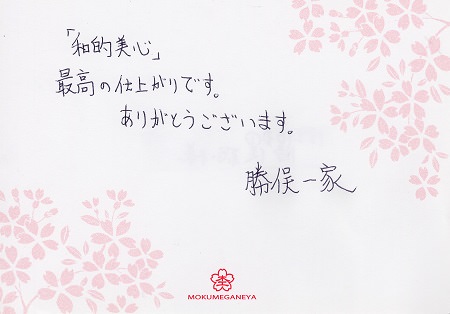 「和的美心」
最高の仕上がりです。
ありがとうございます。
勝俣一家
MOKUMEGANEYA